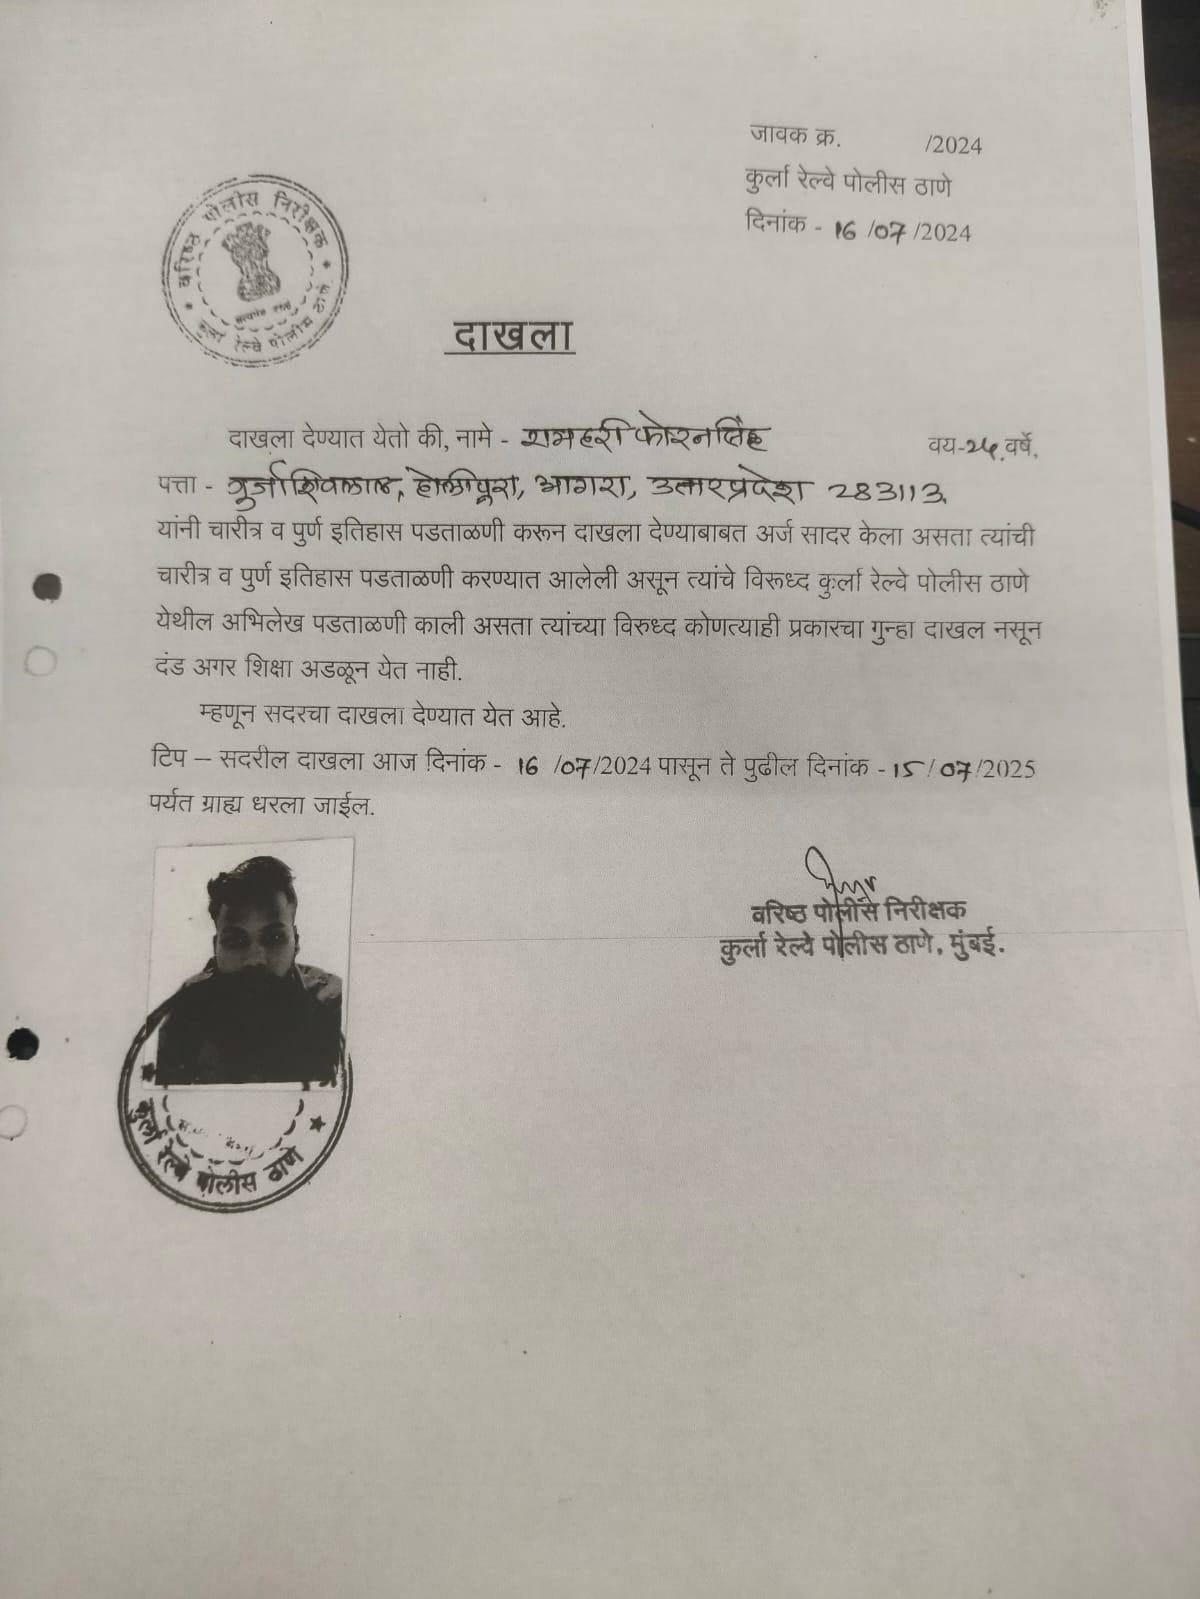 जावक क्र. /2024
कुर्ला रेल्वे पोलीस ठाणे
दिनांक - 16 /07 /2024
वरिष्ठ पोलीस निरीक्षक
कुर्ला रेल्वे पोलीस ठाणे
दाखला
दाखला देण्यात येतो की, नामे - रामहरी फोरनसिंह वय-24 वर्षे,
पत्ता - गुर्जा शिवलाल, होलीपूरा, आगरा, उत्तरप्रदेश 283113
यांनी चारीत्र व पुर्ण इतिहास पडताळणी करून दाखला देण्याबाबत अर्ज सादर केला असता त्यांची
चारीत्र व पुर्ण इतिहास पडताळणी करण्यात आलेली असून त्यांचे विरूध्द कुर्ला रेल्वे पोलीस ठाणे
येथील अभिलेख पडताळणी काली असता त्यांच्या विरुध्द कोणत्याही प्रकारचा गुन्हा दाखल नसून
दंड अगर शिक्षा अडळून येत नाही.
म्हणून सदरचा दाखला देण्यात येत आहे.
टिप – सदरील दाखला आज दिनांक - 16 /07/2024 पासून ते पुढील दिनांक - 15/07/2025
पर्यत ग्राह्य धरला जाईल.
वरिष्ठ पोलीस निरीक्षक
कुर्ला रेल्वे पोलीस ठाणे, मुंबई.
कुर्ला रेल्वे पोलीस ठाणे